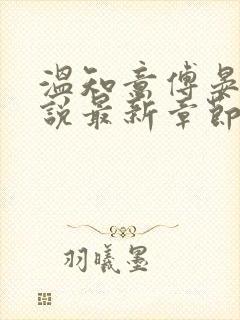 温知意傅晏
说最新章节
羽曦墨